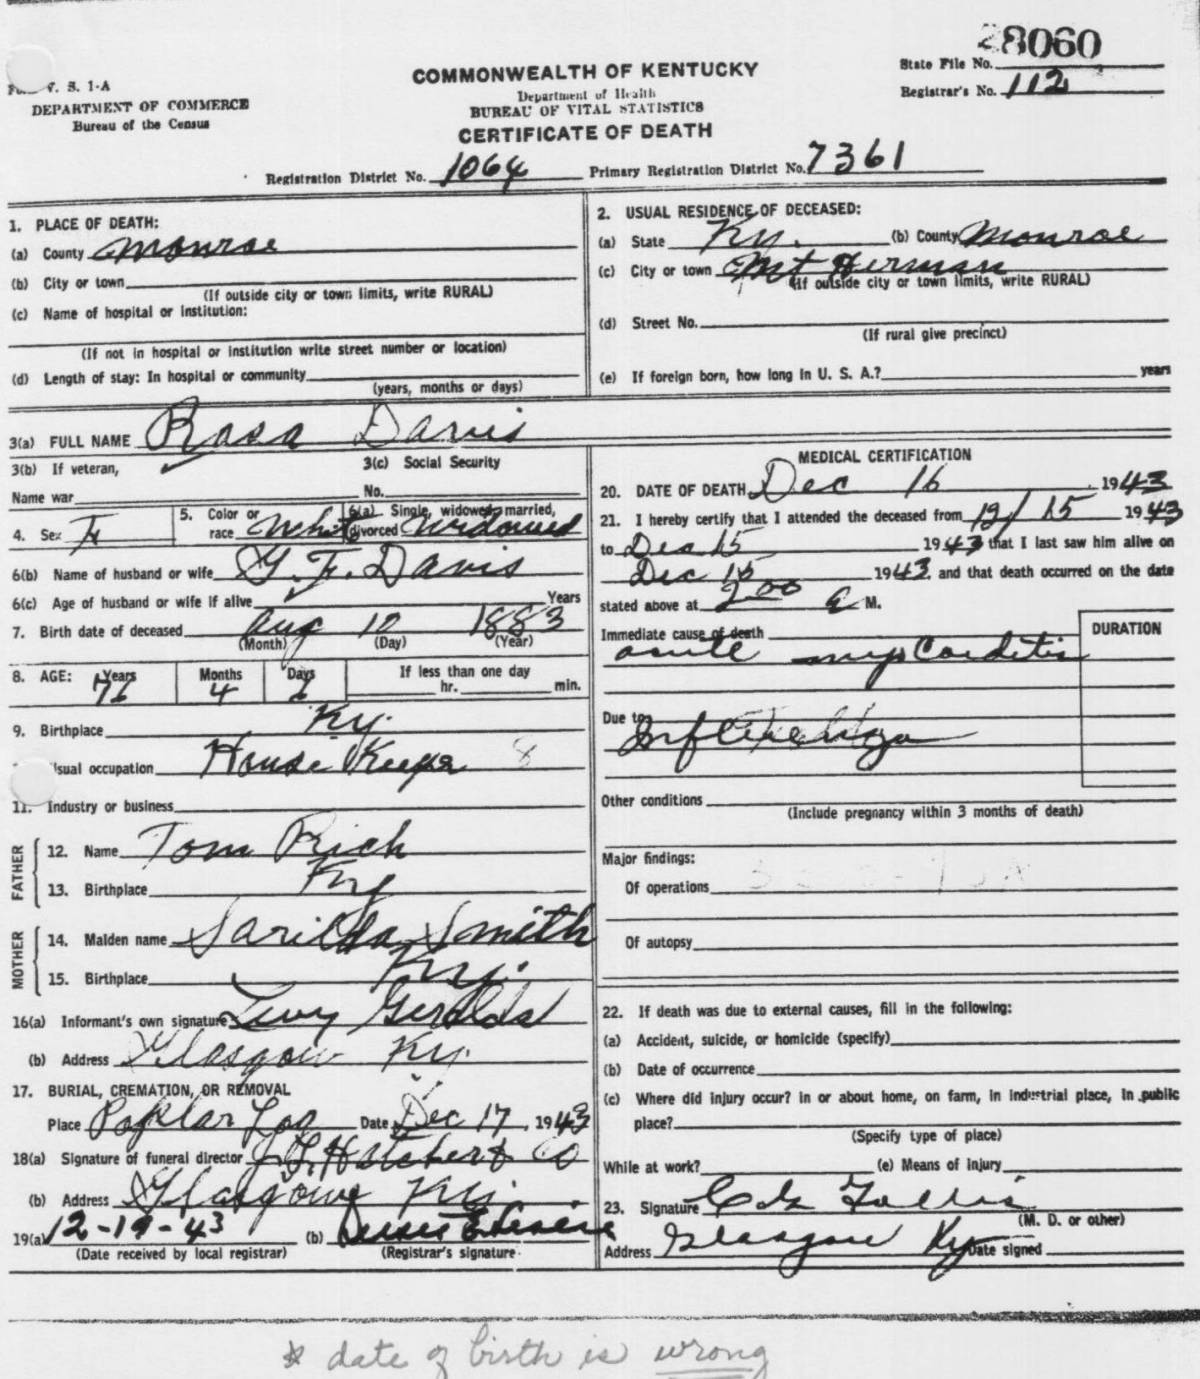 28060
State File No.
Registrar's No. 112
V. S. 1-A
DEPARTMENT OF COMMERCE
Bureau of the Census
COMMONWEALTH OF KENTUCKY
Department of Health
BUREAU OF VITAL STATISTICS
CERTIFICATE OF DEATH
Registration District No. 1064 Primary Registration District No. 7361
1. PLACE OF DEATH:
(a) County Monroe
(b) City or town
(If outside city or town limits, write RURAL)
(c) Name of hospital or institution:
(If not in hospital or institution write street number or location)
(d) Length of stay: In hospital or community
(years, months or days)
2. USUAL RESIDENCE OF DECEASED:
(a) State Ky. (b) County Monroe
(c) City or town Mt Herman
(If outside city or town limits, write RURAL)
(d) Street No.
(If rural give precinct)
(e) If foreign born, how long in U. S. A.? years
3(a) FULL NAME Rosa Davis
3(b) If veteran, 3(c) Social Security
Name war No.
4. Sex F 5. Color or race White 6(a) Single, widowed, married, divorced Widowed
6(b) Name of husband or wife G. F. Davis
6(c) Age of husband or wife if alive Years
7. Birth date of deceased Aug 10 1883
(Month) (Day) (Year)
8. AGE: Years Months Days If less than one day
76 4 6 hr. min.
9. Birthplace Ky.
usual occupation House Keeper 8
11. Industry or business
FATHER
12. Name Tom Rich
13. Birthplace Ky
MOTHER
14. Maiden name Sarilda Smith
15. Birthplace Ky.
16(a) Informant's own signature Levy Geralds
(b) Address Glasgow Ky.
17. BURIAL, CREMATION, OR REMOVAL
Place Poplar Log Date Dec 17, 1943
18(a) Signature of funeral director J. L. Hatcher & Co
(b) Address Glasgow Ky.
19(a) 12-19-43 (b)
(Date received by local registrar) (Registrar's signature
MEDICAL CERTIFICATION
20. DATE OF DEATH Dec 16, 1943
21. I hereby certify that I attended the deceased from 12/15 1943
to Dec 15 1943 that I last saw him alive on
Dec 15 1943, and that death occurred on the date
stated above at 2:00 a M.
Immediate cause of death DURATION
acute myocarditis
Due to
Influenza
Other conditions
(Include pregnancy within 3 months of death)
Major findings:
Of operations
Of autopsy
22. If death was due to external causes, fill in the following:
(a) Accident, suicide, or homicide (specify)
(b) Date of occurrence
(c) Where did injury occur? In or about home, on farm, in industrial place, in public
place?
(Specify type of place)
While at work? (e) Means of injury
23. Signature
(M. D. or other)
Address Glasgow Ky Date signed
* date of birth is wrong